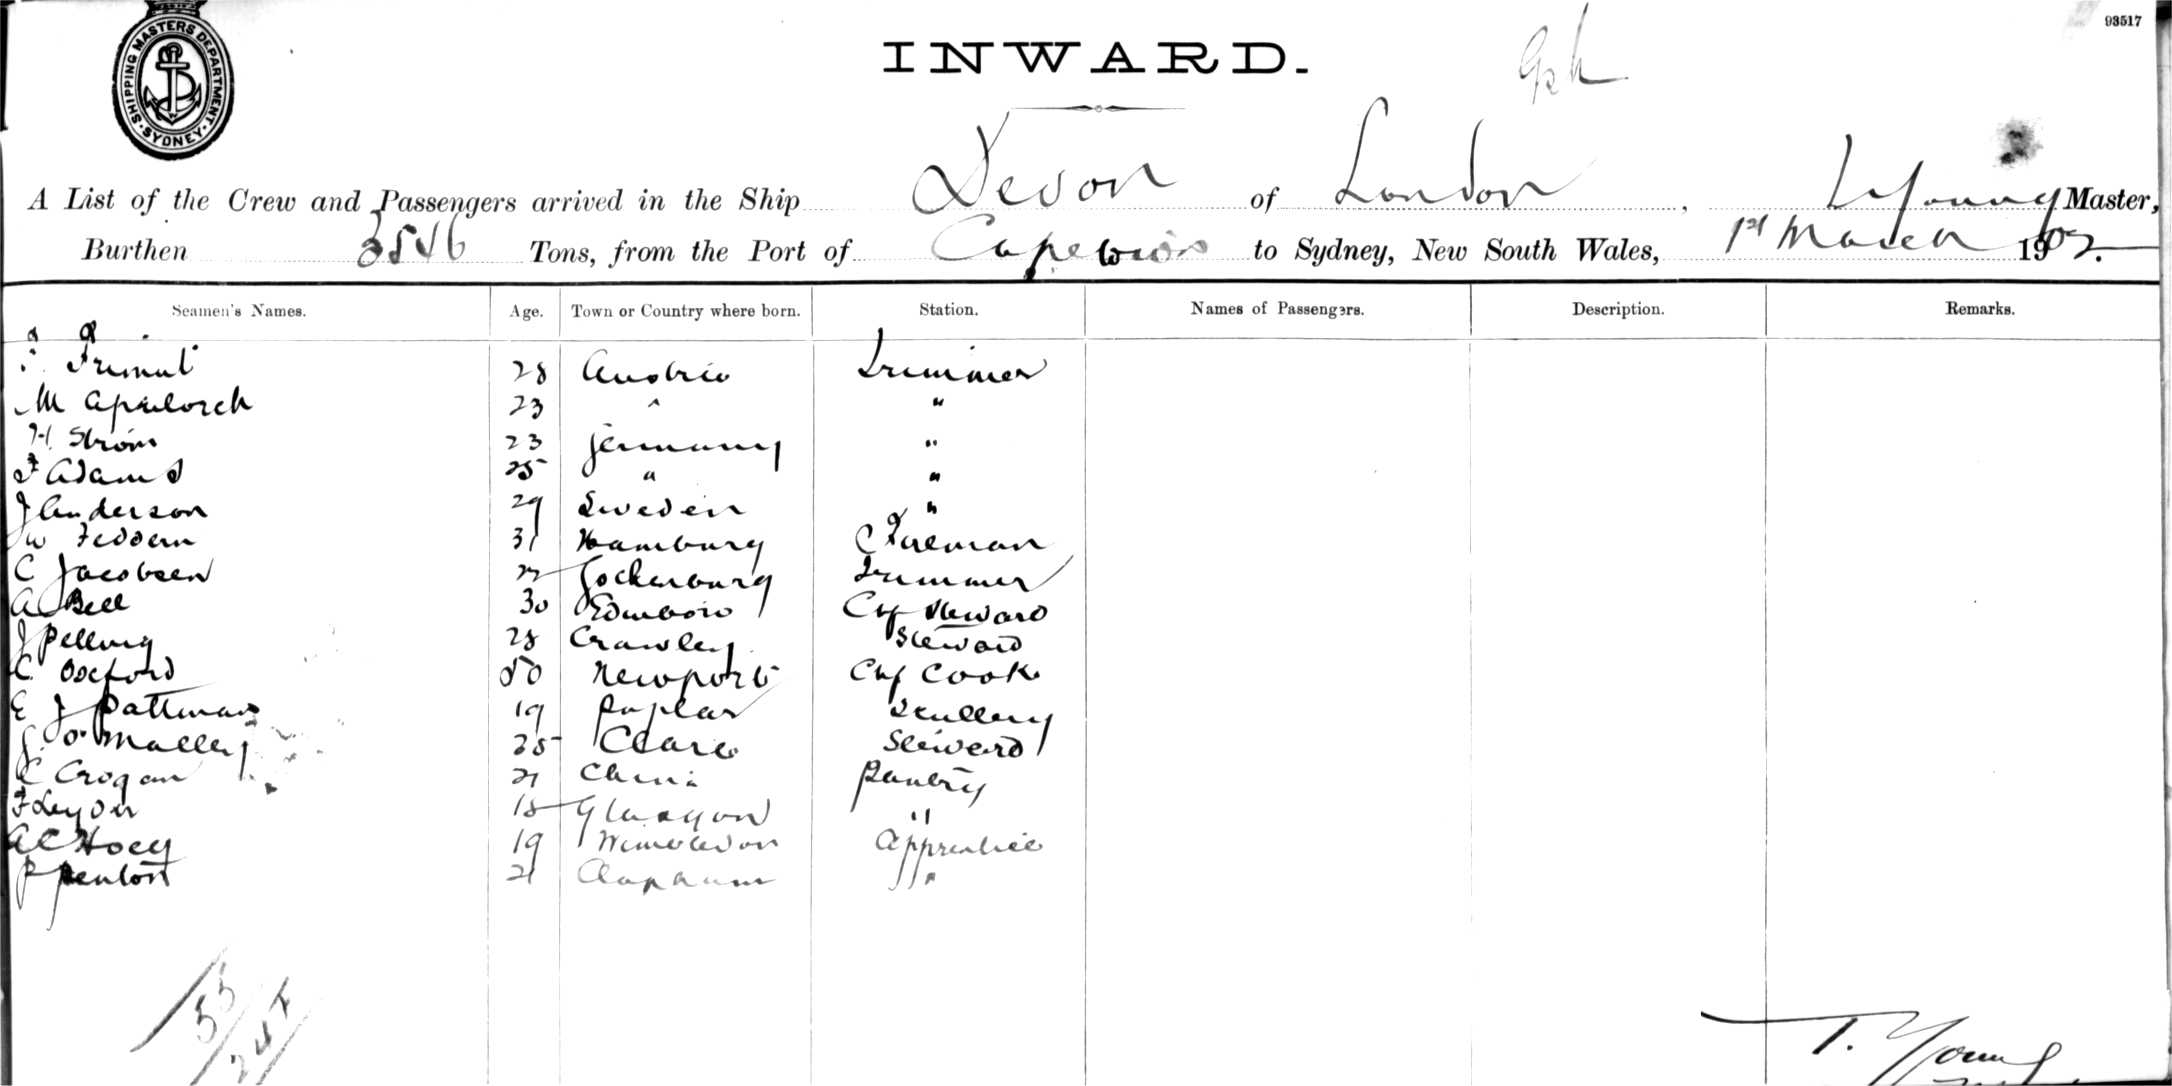 93517
SHIPPING MASTERS DEPARTMENT
SYDNEY
INWARD.
A List of the Crew and Passengers arrived in the Ship Devon of London, T Young Master,
Burthen 3546 Tons, from the Port of Capetown to Sydney, New South Wales, 1st March 1907.
Seamen's Names. Age. Town or Country where born. Station. Names of Passengers. Description. Remarks.
28 Austria Trimmer
M 23 " "
H. Strom 23 Germany "
F Adams 25 " "
J Anderson 29 Sweden "
W Feddern 31 Hamburg C Fireman
C Jacobsen Trimmer
A Bell 30 Edinboro Chf Steward
J Pelling 28 Crawley Steward
C Oxford 50 Newport Chf Cook
E J Pattman 19 Poplar Scullery
J O'Malley 25 Clare Steward
C Crogan 21 China Pantry
F Lyon 18 Glasgow "
A C Hoey 19 Wimbledon Apprentice
P Penton 21 Clapham "
T. Young